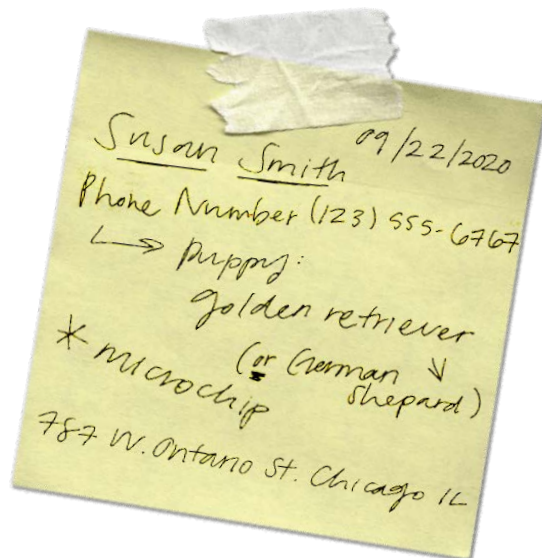 Susan Smith 09/22/2020
Phone Number (123) 555-6767
→ puppy:
golden retriever
(or German ↓
shepard)
* microchip
787 W. Ontario St. Chicago IL